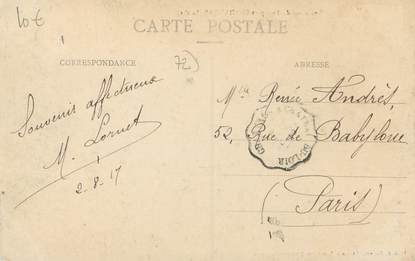 10€
CARTE POSTALE
CORRESPONDANCE
72)
ADRESSE
Souvenir affectueux
M. Lornet
2-8-17
Mlle Renée Andrès,
52, Rue de Babylone
(Paris)